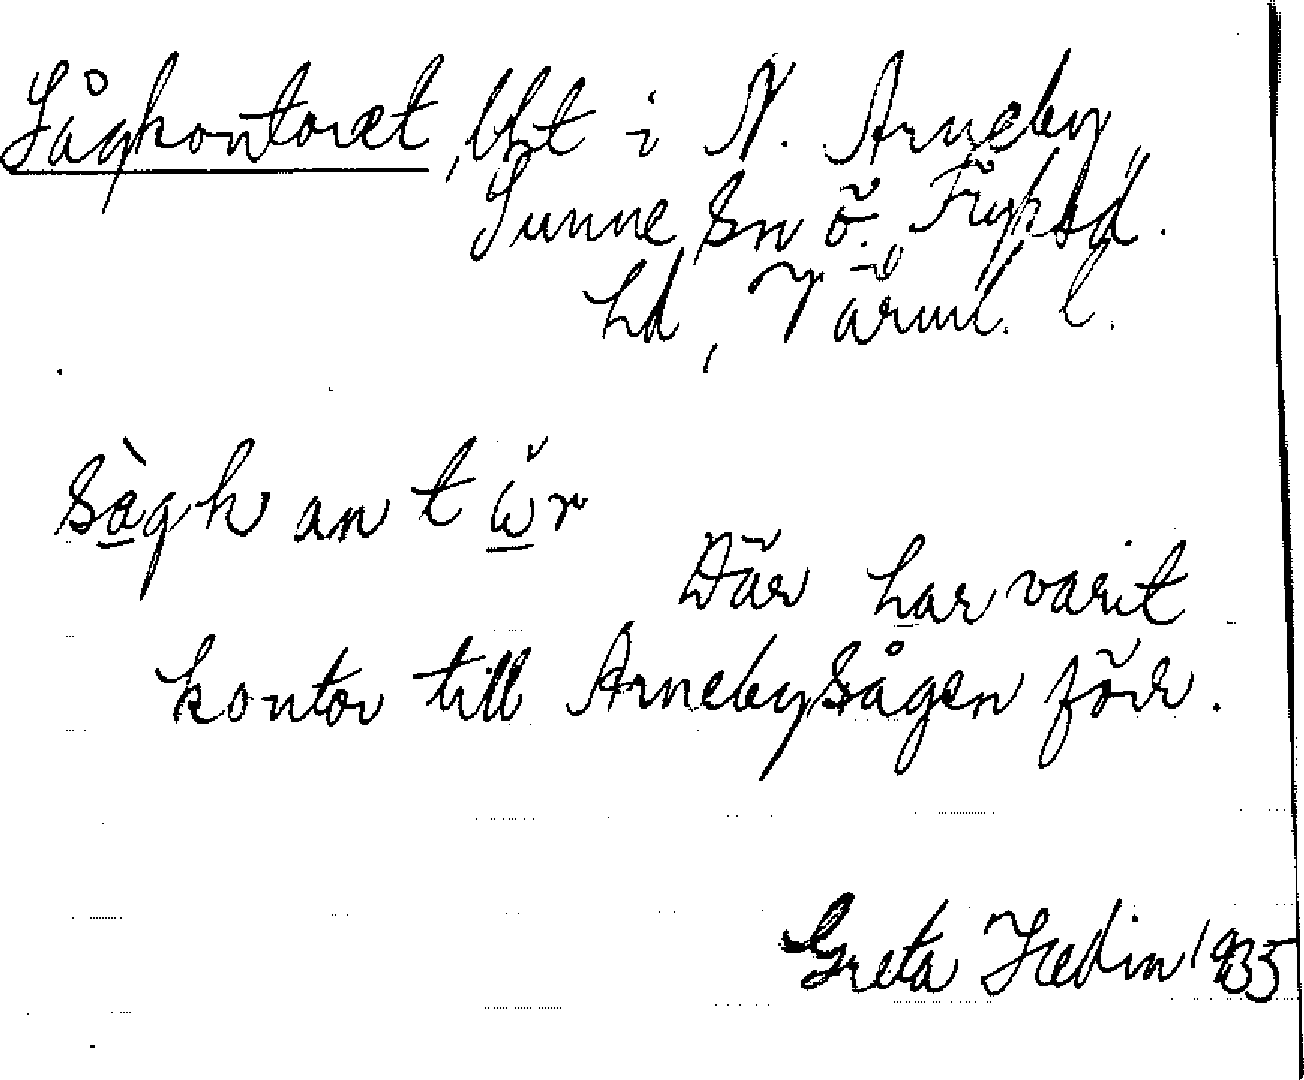 Sågkontoret, lht i N. Arneby,
Sunne sn Ö. Fryksd.
hd, Värml. l.
sàgkantωr
Där har varit
kontor till Arnebysågen förr.
Greta Hedin 1935